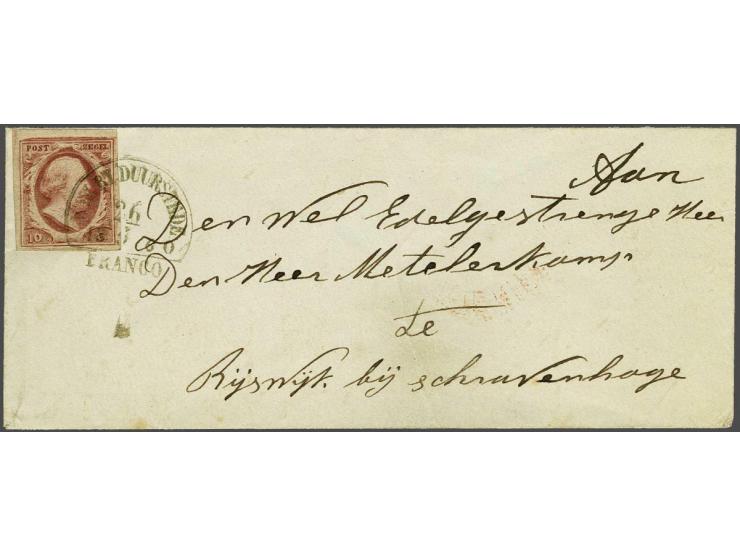 POST ZEGEL
10 C
26
FRANCO
Aan
Den Wel Edelgestrenge Heer
Den Heer Metelerkamp
te
Rijswijk bij schravenhage